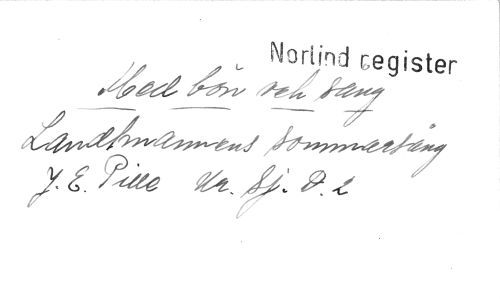 Norlind register
Med bön och sang
Landtmannens sommarsång
J. E. Pille Ur. Sj. D. 2